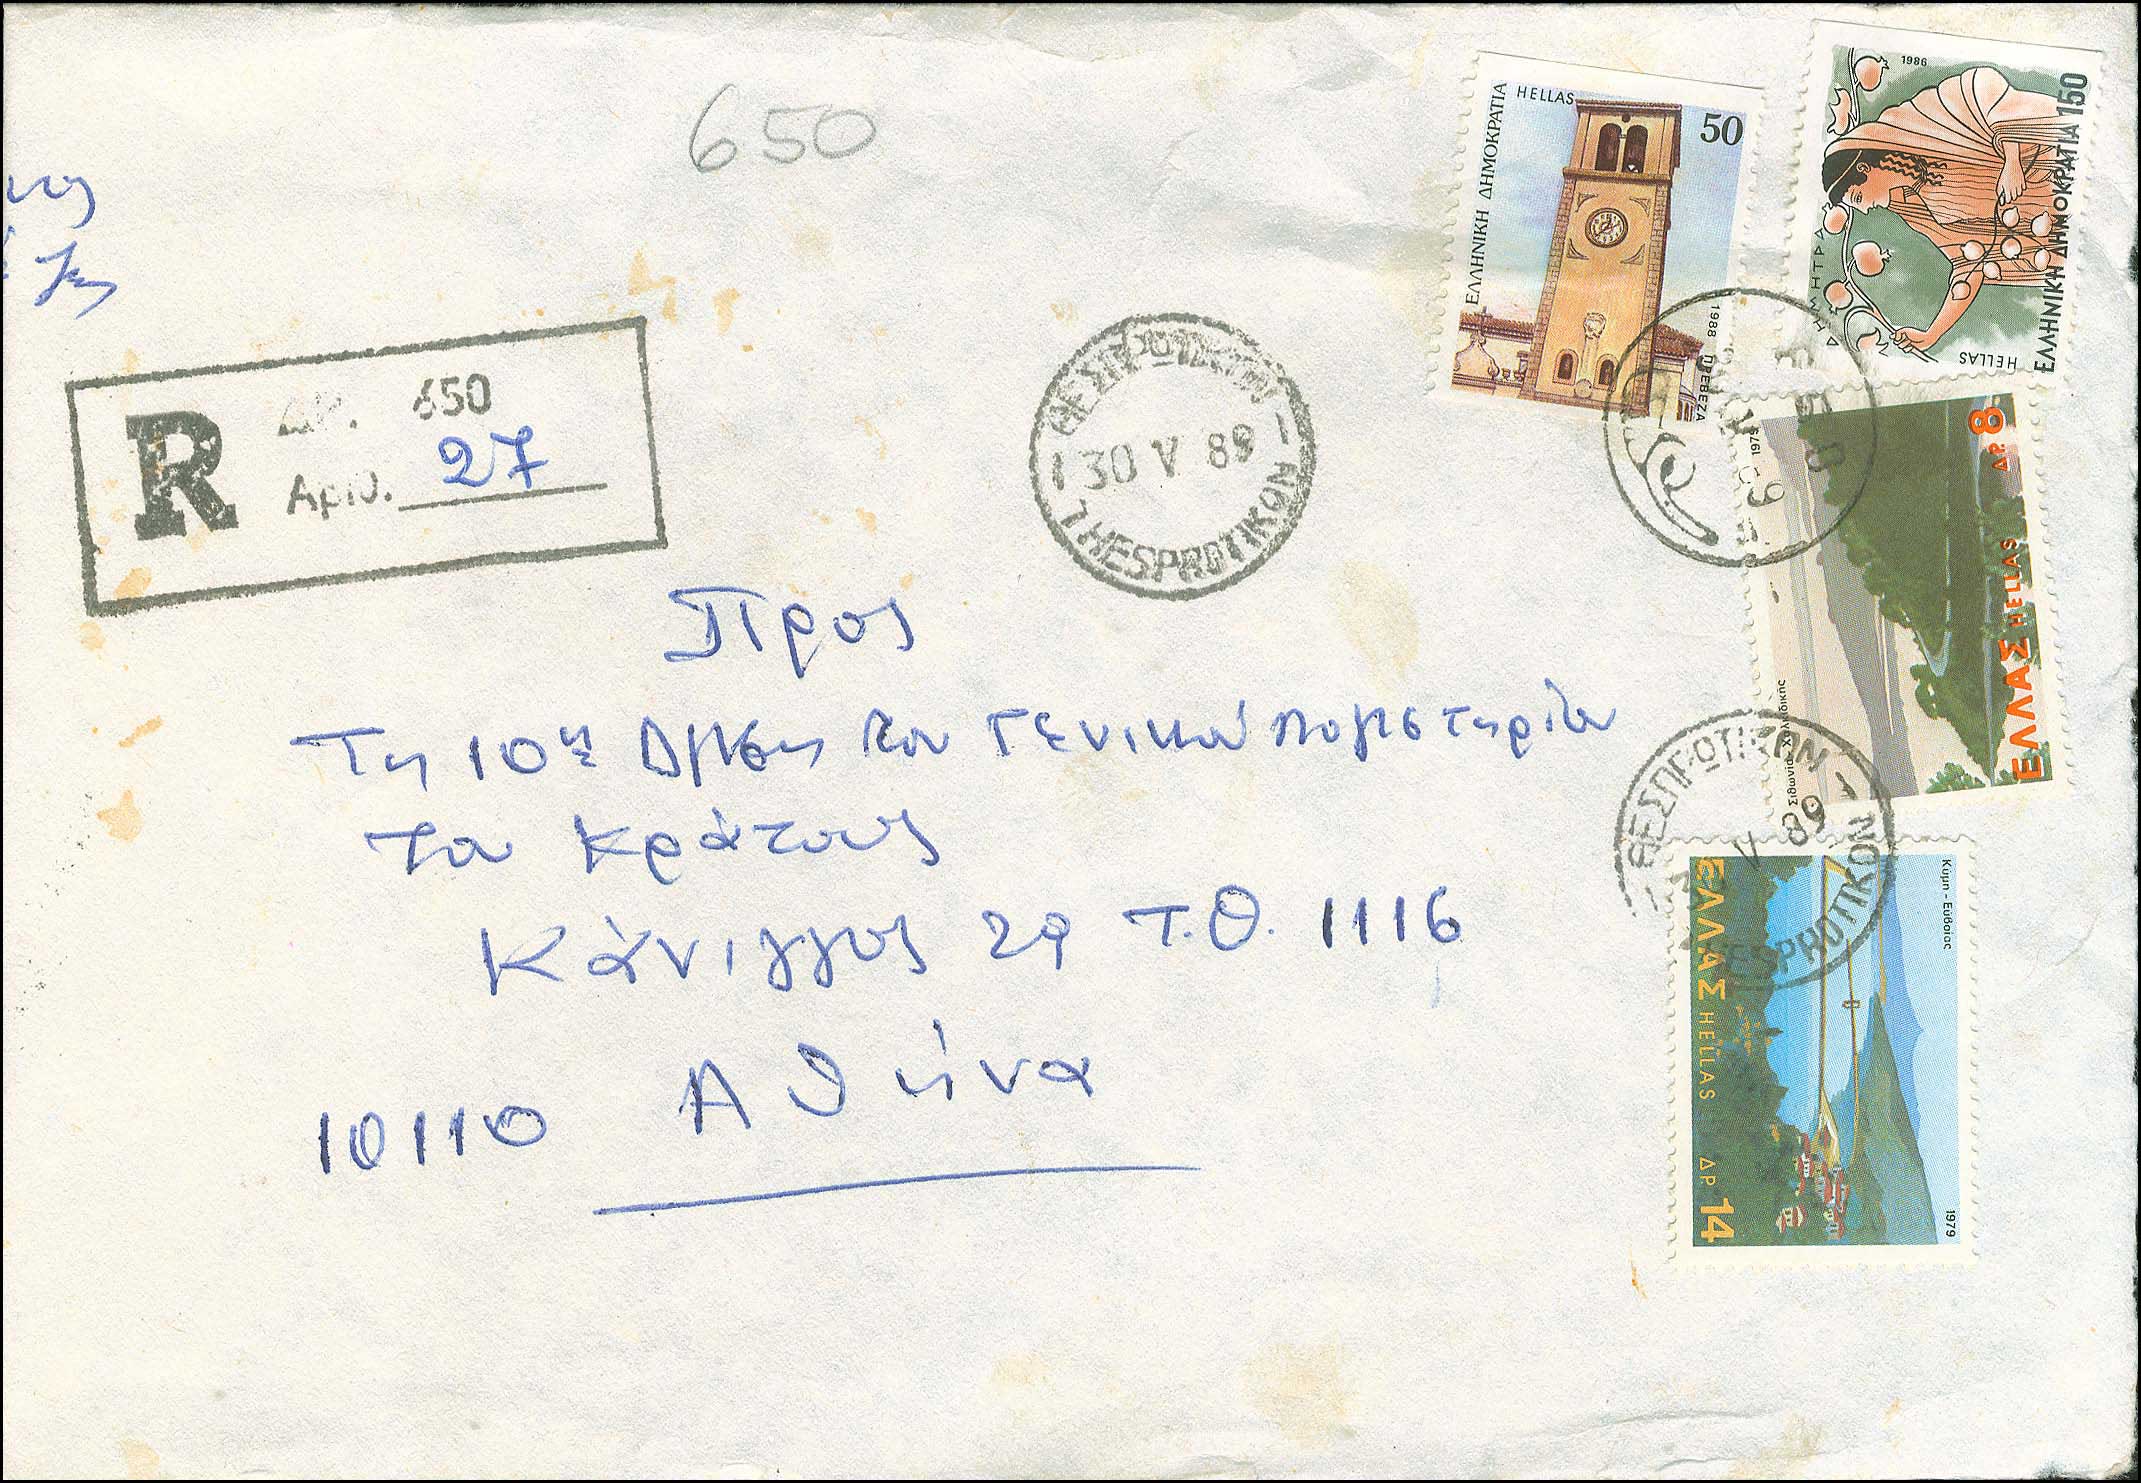 650
R
ΑΡ. 650
Αριθ. 27
ΘΕΣΠΡΩΤΙΚΟΝ
30 V 89
THESPROTIKON
HELLAS
50
ΕΛΛΗΝΙΚΗ ΔΗΜΟΚΡΑΤΙΑ
1988 ΠΡΕΒΕΖΑ
1986
ΔΗΜΗΤΡΑ
HELLAS
ΕΛΛΗΝΙΚΗ ΔΗΜΟΚΡΑΤΙΑ 150
1979
Σιθωνία Χαλκιδικής
ΕΛΛΑΣ HELLAS ΔΡ. 8
ΘΕΣΠΡΩΤΙΚΟΝ
V 89
THESPROTIKON
ΕΛΛΑΣ HELLAS ΔΡ 14
Κύμη - Εύβοίας
1979
Προς
Τη 10η Δ/νση του Γενικού Λογιστηρίου
Του Κράτους
Κάνιγγος 29 Τ.Θ. 1116
10110 Αθήνα